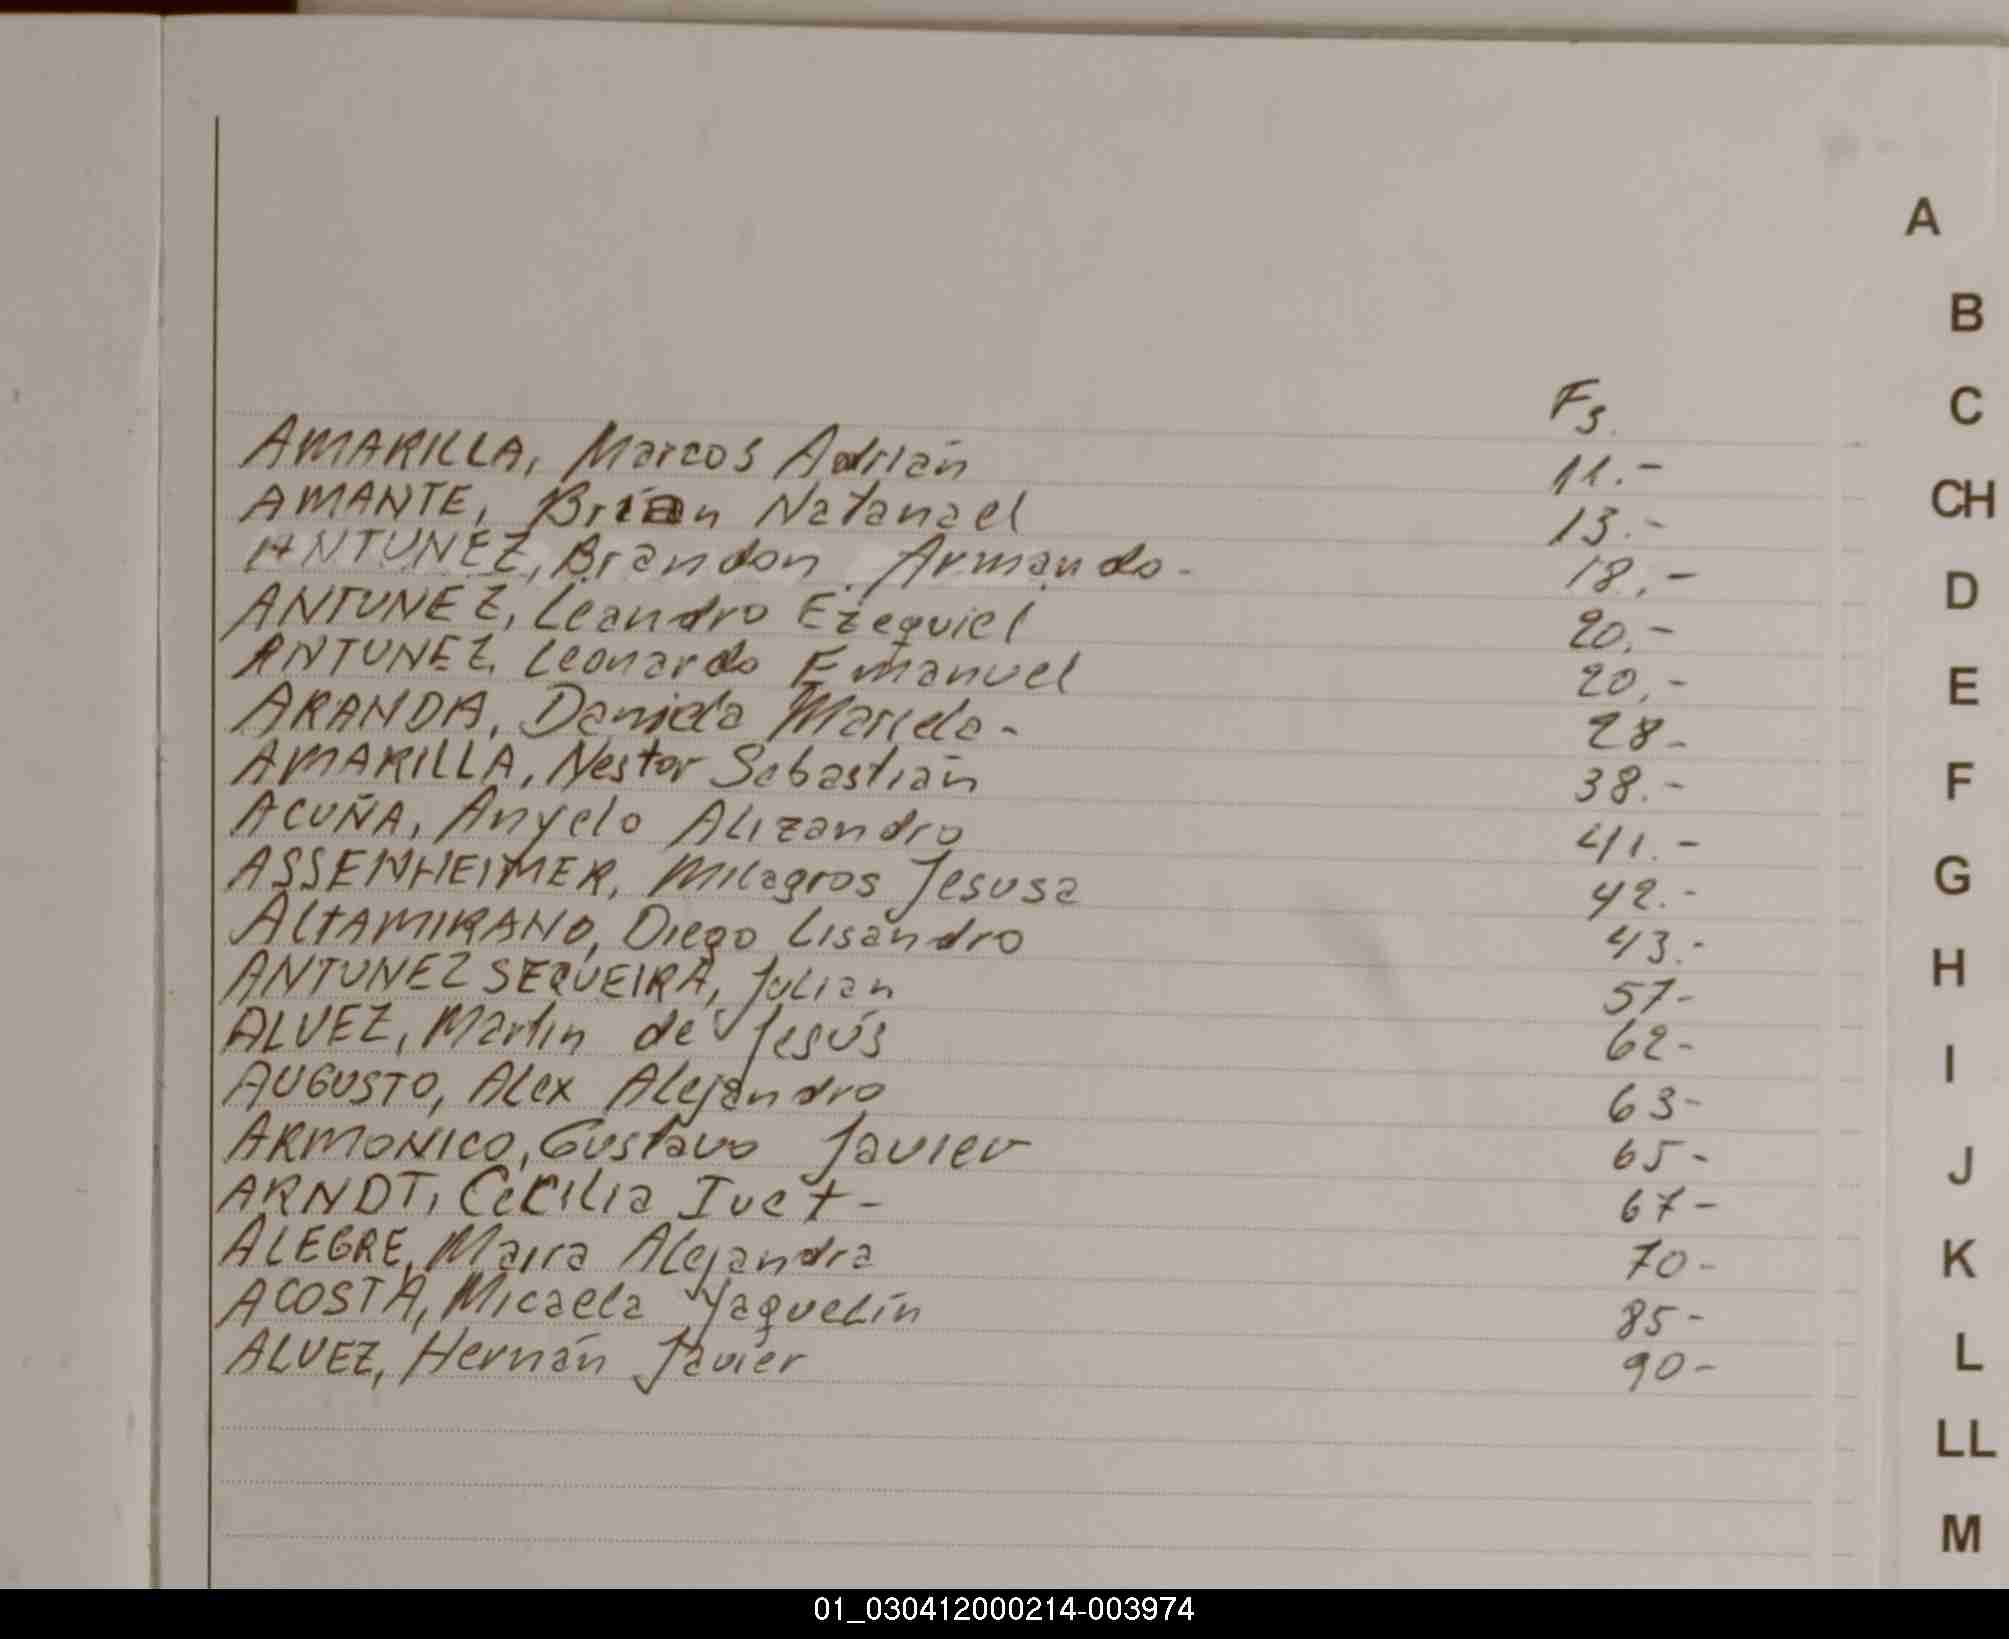 Fs.
AMARILLA, Marcos Adrián 11.-
AMANTE, Brian Natanael 13.-
ANTUNEZ, Brandon Armando- 18.-
ANTUNEZ, Leandro Ezequiel 20.-
ANTUNEZ, Leonardo Emanuel 20.-
ARANDA, Daniela Mariela- 28-
AMARILLA, Nestor Sebastián 38.-
ACUÑA, Anyelo Alizandro 41.-
ASSENHEIMER, Milagros Jesusa 42.-
ALTAMIRANO, Diego Lisandro 43.-
ANTUNEZ SEQUEIRA, Julian 57-
ALVEZ, Martin de Jesús 62-
AUGUSTO, Alex Alejandro 63-
ARMONICO, Gustavo Javier 65-
ARNDT, Cecilia Ivet- 67-
ALEGRE, Maira Alejandra 70-
ACOSTA, Micaela Yaquelín 85-
ALVEZ, Hernán Javier 90-
A
B
C
CH
D
E
F
G
H
I
J
K
L
LL
M
01_030412000214-003974